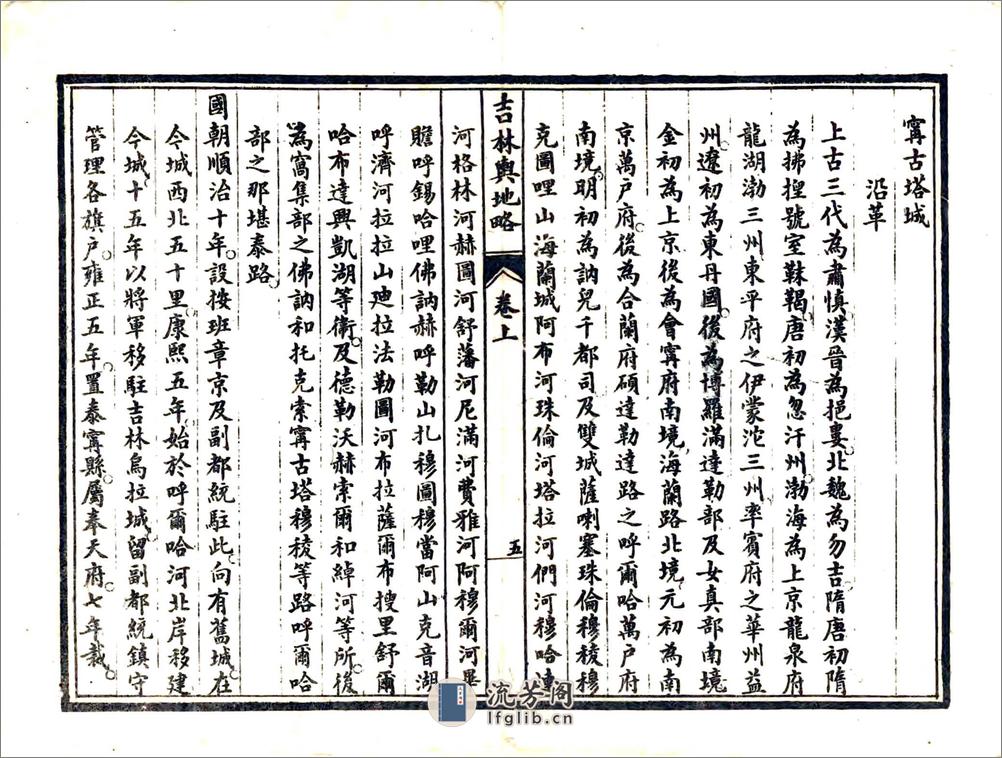 寗古塔城
沿革
上古三代為肅慎漢晉為挹婁北魏為勿吉隋唐初隋
為拂揑號室韎鞨唐初為忽汗州渤海為上京龍泉府
龍湖渤三州東平府之伊蒙沱三州率賓府之華州益
州遼初為東丹國後為博羅滿達勒部及女真部南境
金初為上京後為會寗府南境海蘭路北境元初為南
京萬戶府後為合蘭府碩達勒達路之呼爾哈萬戶府
南境明初為訥兒干都司及雙城薩喇塞珠倫穆稜穆
克圖哩山海蘭城阿布河珠倫河塔拉河們河穆哈連
吉林輿地略
卷上
五
河格林河赫圖河舒藩河尼滿河費雅河阿穆爾河畢
瞻呼錫哈哩佛訥赫呼勒山扎穆圖穆當阿山克音湖
呼濟河拉拉山廸拉法勒圖河布拉薩爾布搜里舒爾
哈布達興凱湖等衞及德勒沃赫索爾和綽河等所後
為窩集部之佛訥和托克索寗古塔穆稜等路呼爾哈
部之那堪泰路
國朝順治十年設按班章京及副都統駐此向有舊城在
今城西北五十里康熙五年始於呼爾哈河北岸移建
今城十五年以將軍移駐吉林烏拉城留副都統鎮守
管理各旗戶雍正五年置泰寗縣屬奉天府七年裁
流芳阁
lfglib.cn